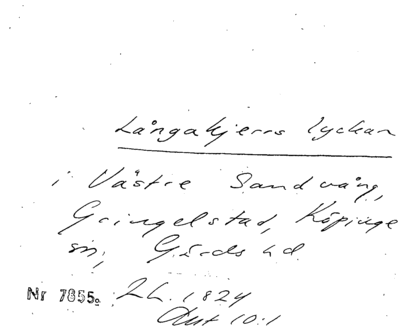 Långakjerrs lyckan
i Västre Sandvång,
Gringelstad, Köpinge
sn, Gärds hd
Nr 7855. Lh. 1824
Akt 10:1